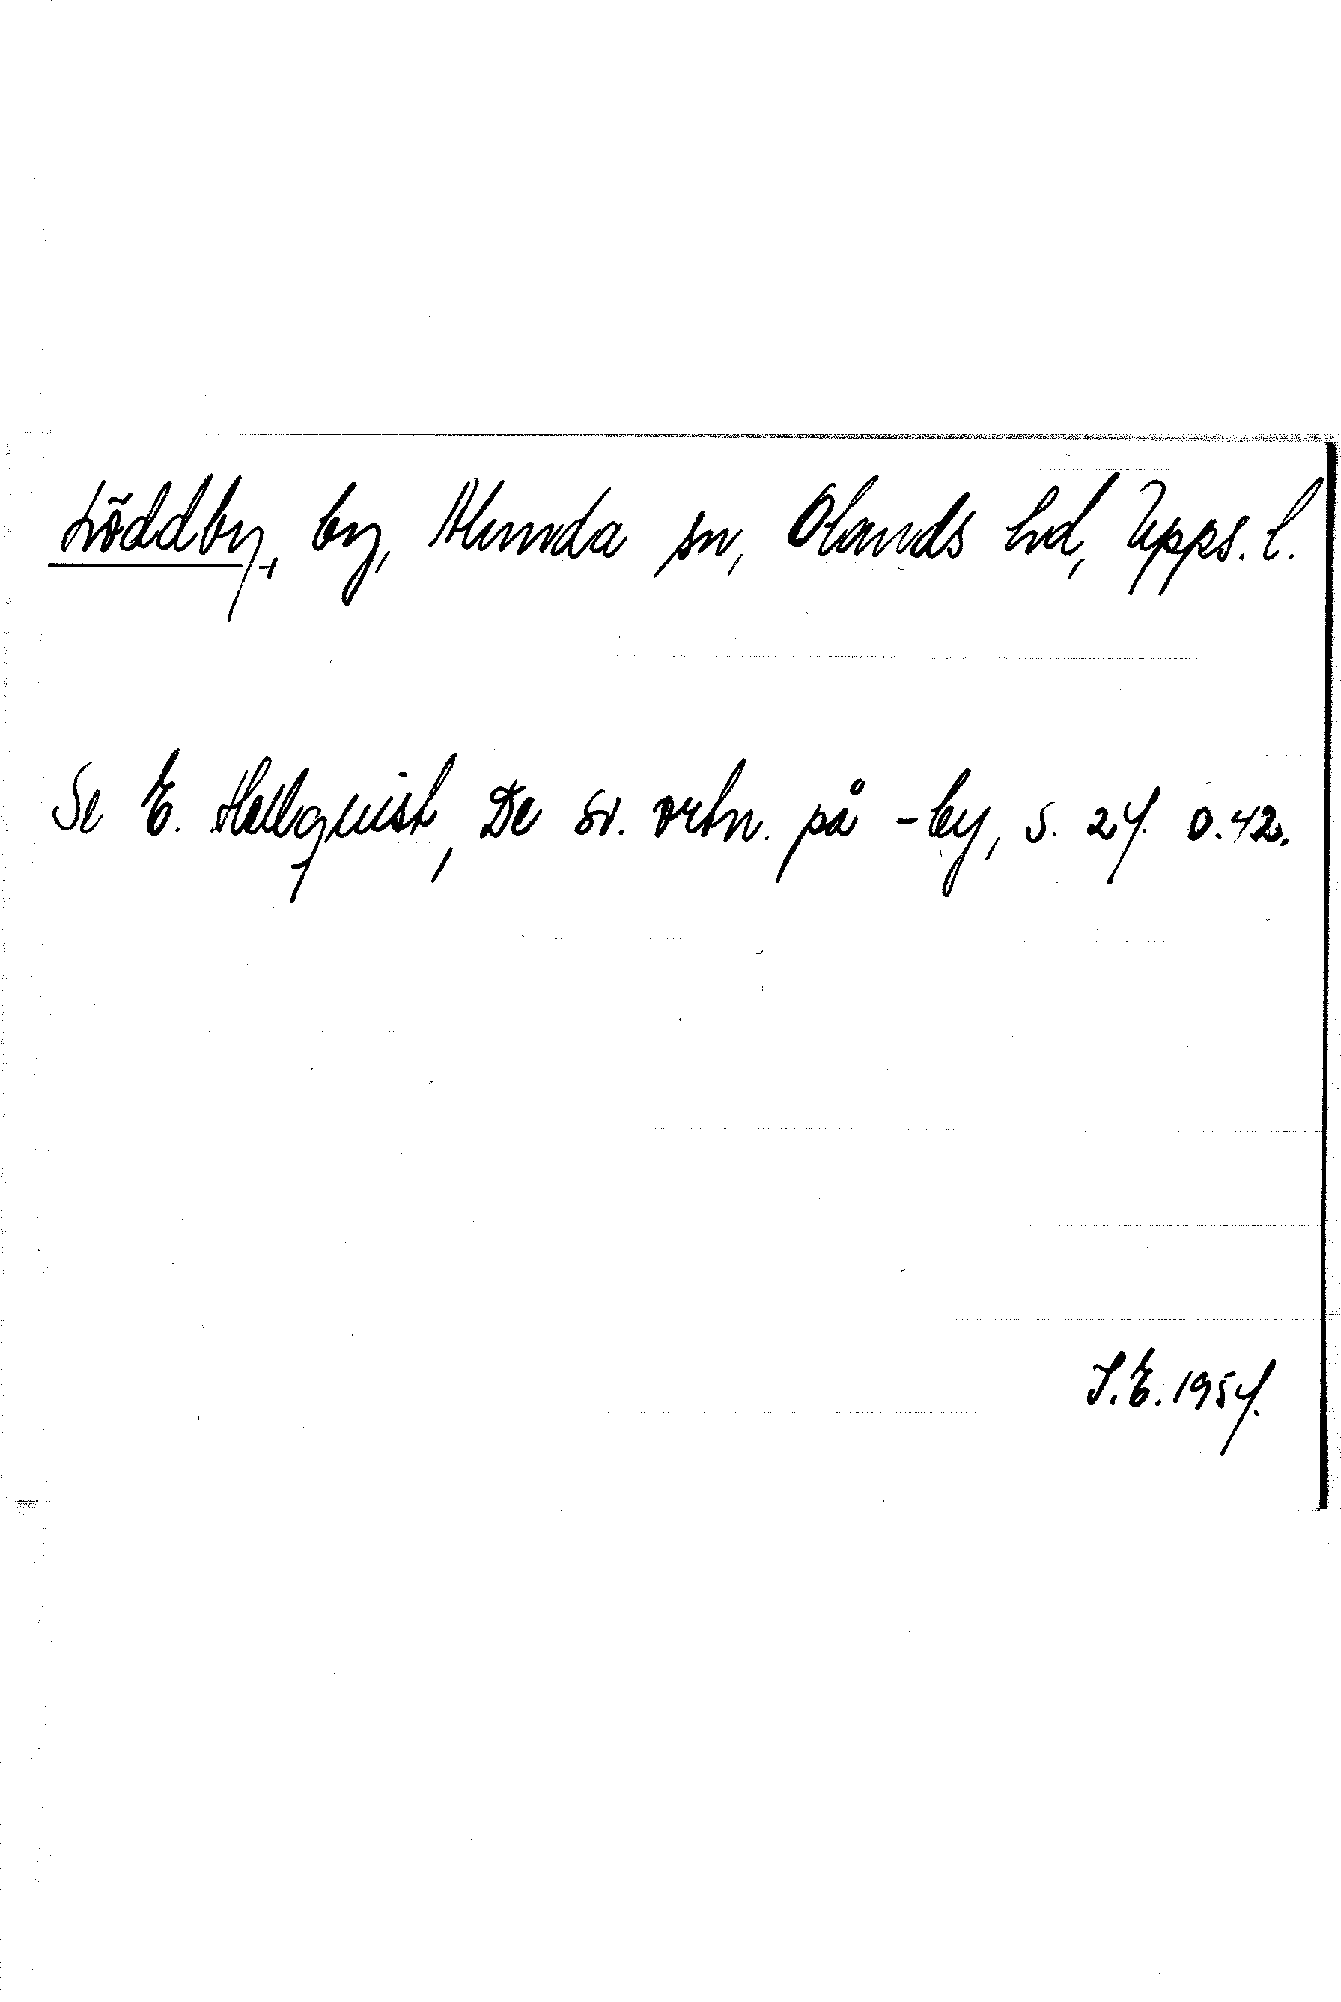 Löddby, by, Alunda sn, Olands hd, Upps. l.
Se E. Hellquist, De sv. ortn. på -by, s. 24 o. 42.
S.E. 1954.